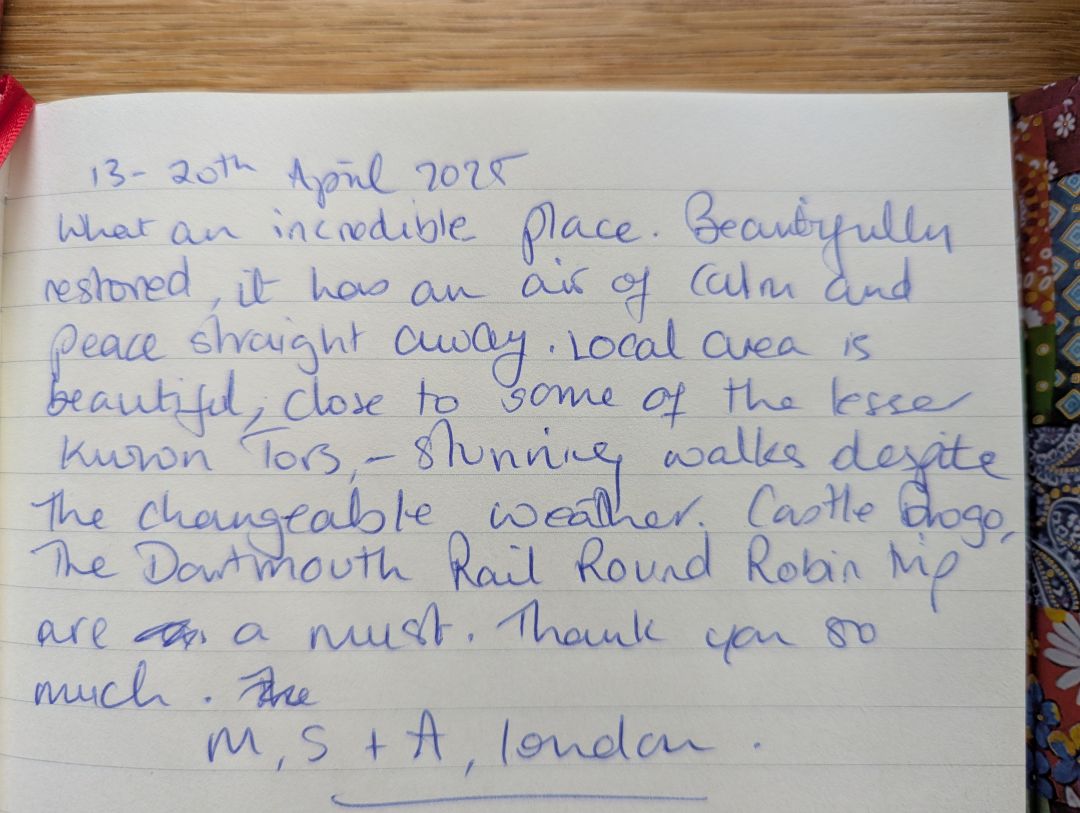 13-20th April 2025
What an incredible place. Beautifully
restored, it has an air of calm and
peace straight away. Local area is
beautiful, close to some of the lesser
known Tors, - stunning walks despite
the changeable weather. Castle Drogo,
The Dartmouth Rail Round Robin trip
are a must. Thank you so
much. The
M, S + A, London.